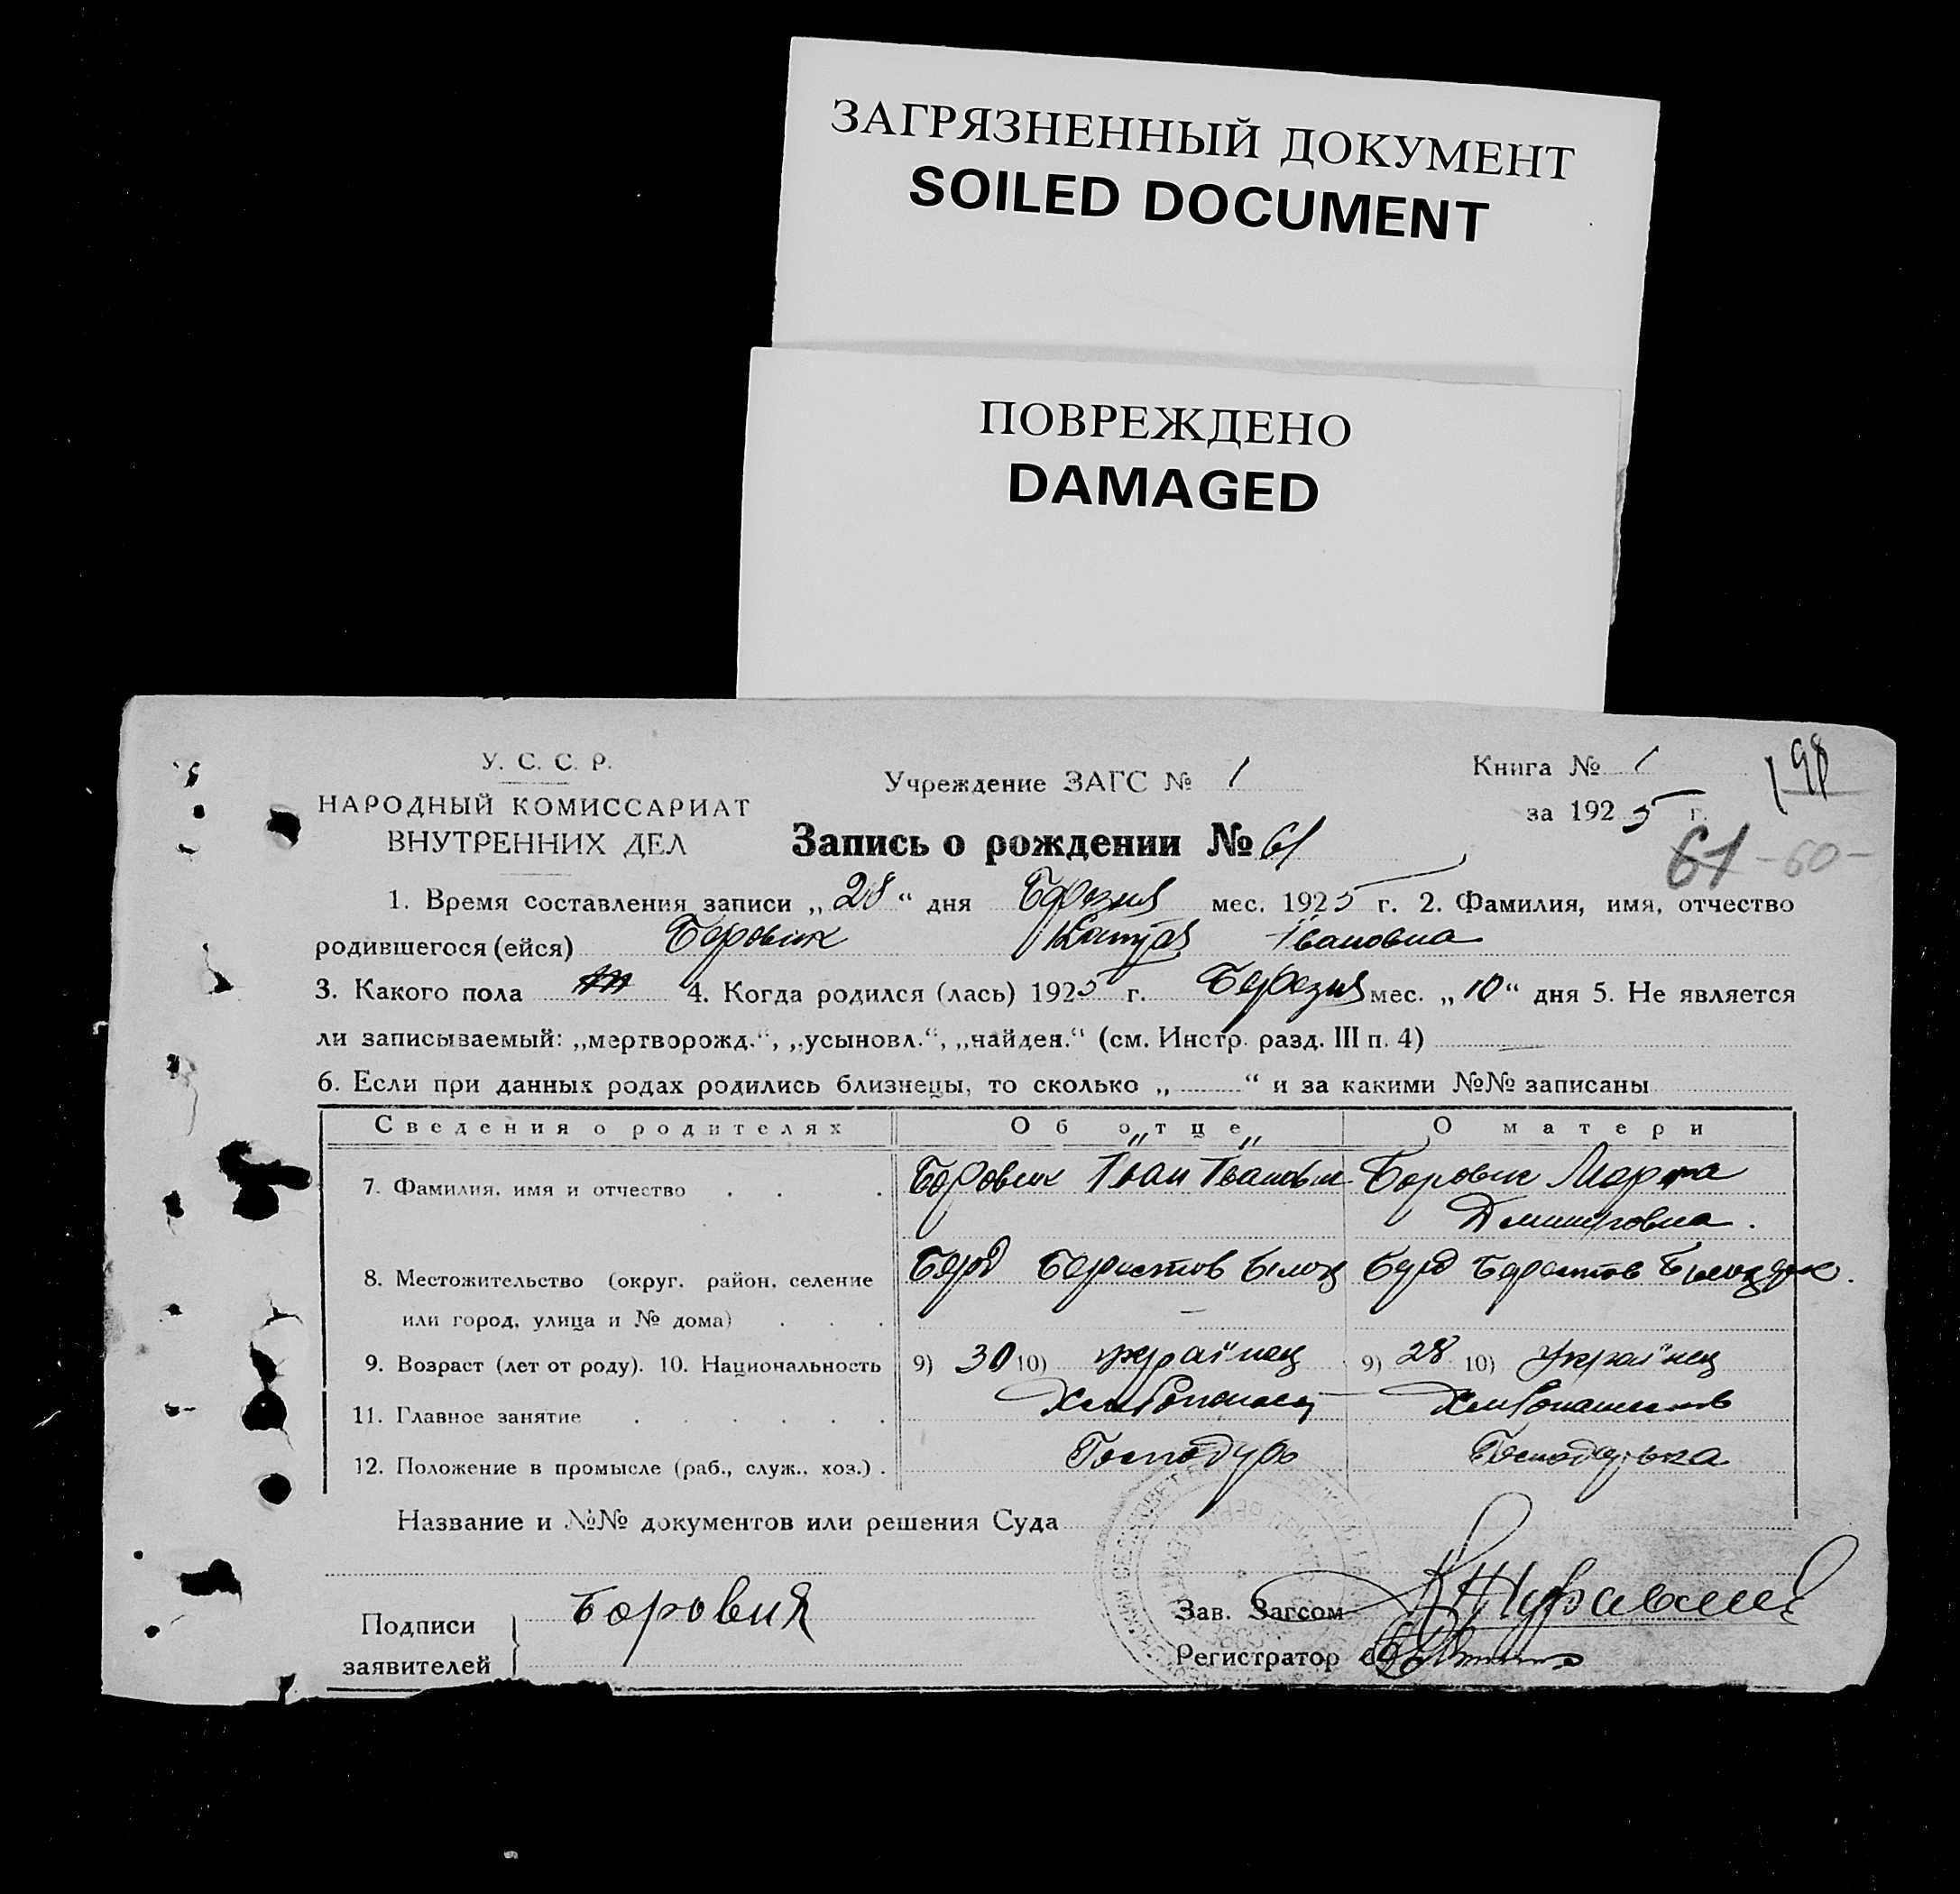 ЗАГРЯЗНЕННЫЙ ДОКУМЕНТ
SOILED DOCUMENT
ПОВРЕЖДЕНО
DAMAGED
У. С. С. Р.
НАРОДНЫЙ КОМИССАРИАТ
ВНУТРЕННИХ ДЕЛ
Учреждение ЗАГС № 1
Книга № 1
за 1925 г.
198
Запись о рождении № 61
61 -60-
1. Время составления записи „28“ дня Березня мес. 1925 г. 2. Фамилия, имя, отчество
родившегося (ейся) Боровик Івановна
3. Какого пола 4. Когда родился (лась) 1925 г. Березня мес. „10“ дня 5. Не является
ли записываемый: „мертворожд.“, „усыновл.“, „найден.“ (см. Инстр. разд. III п. 4)
6. Если при данных родах родились близнецы, то сколько „ “ и за какими №№ записаны
Сведения о родителях Об отце О матери
7. Фамилия, имя и отчество Боровик Іван Іванович Боровик Марта
Дмитровна.
8. Местожительство (округ, район, селение
или город, улица и № дома)
9. Возраст (лет от роду). 10. Национальность 9) 30 10) українец 9) 28 10) українец
11. Главное занятие
12. Положение в промысле (раб., служ., хоз.) Господарь Господарька
Название и №№ документов или решения Суда
Подписи
заявителей
Боровик
Зав. Загсом
Регистратор